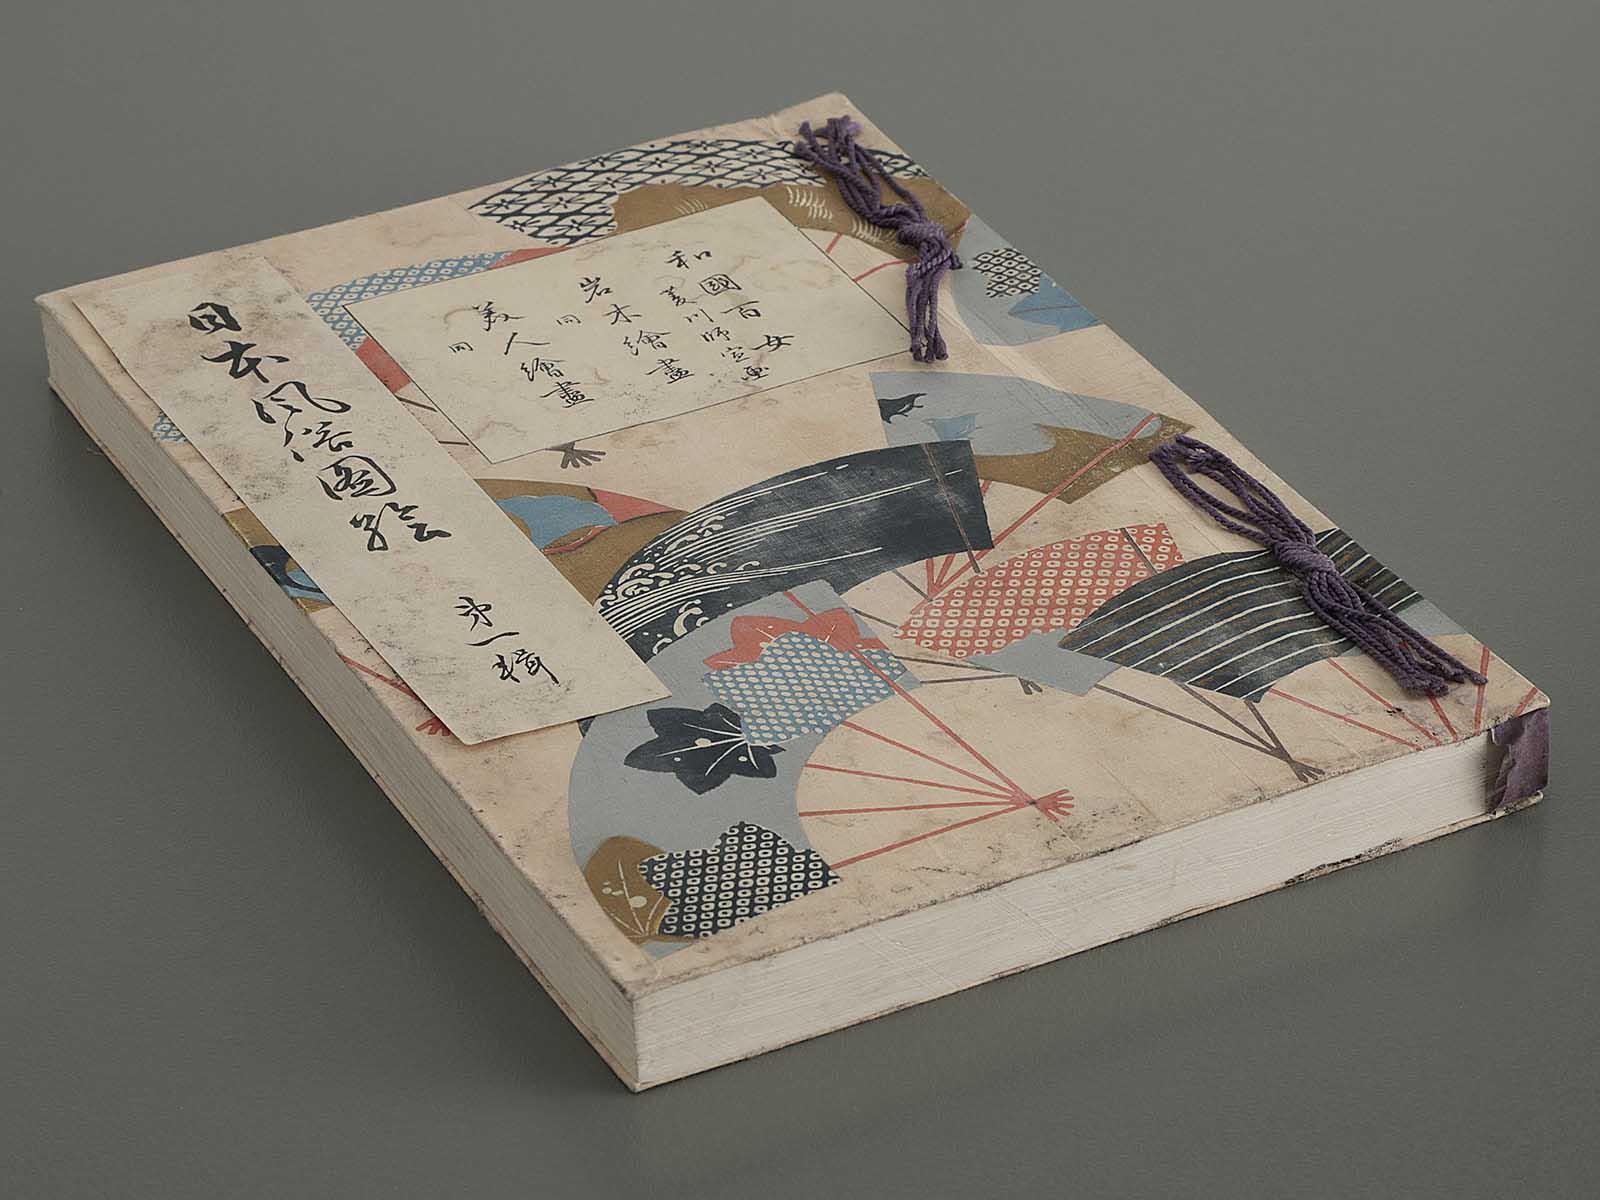 日本風俗圖絵 第一輯
和國百女
菱川師宣画
岩木繪盡
同
美人繪盡
同